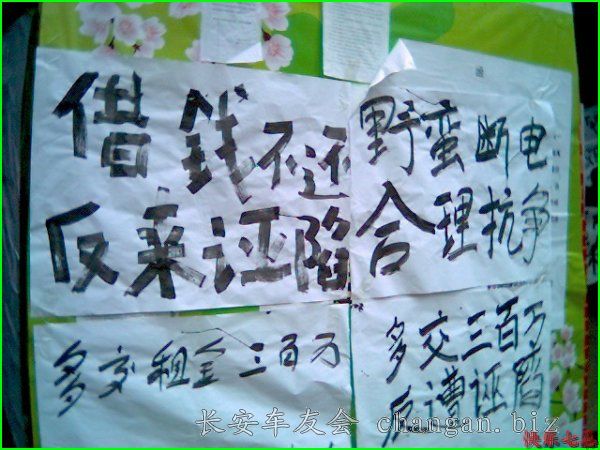 借钱不还
反来诬陷
野蛮断电
合理抗争
多交租金三百万
多交三百万
反遭诬陷
长安车友会 changan.biz
快乐七